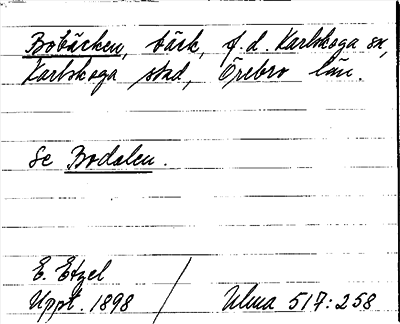 Bobäcken, bäck, f.d. Karlskoga sn,
Karlskoga stad, Örebro län.
Se Bodalen.
E. Etzel
Uppt. 1898 / Ulma 517:258